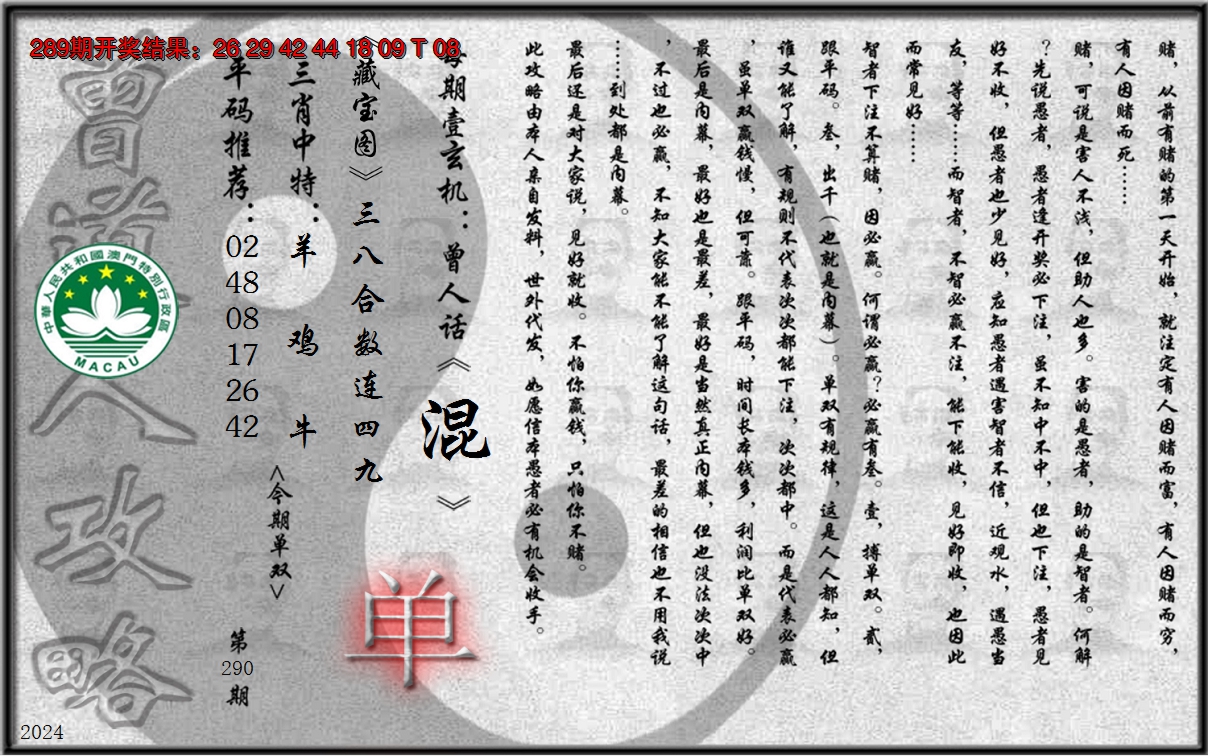 289期开奖结果：26 29 42 44 18 09 T 08
赌，从前有赌的第一天开始，就注定有人因赌而富，有人因赌而穷，
有人因赌而死……
赌，可说是害人不浅，但助人也多。害的是愚者，助的是智者。何解
？先说愚者，愚者逢开奖必下注，虽不知中不中，但也下注，愚者见
好不收，但愚者也少见好，应知愚者遇害智者不信，近观水，遇愚当
友，等等……而智者，不智必赢不注，能下能收，见好即收，也因此
而常见好……
智者下注不算赌，因必赢。何谓必赢？必赢有叁。壹，搏单双。贰，
跟平码。叁，出千（也就是内幕）。单双有规律，这是人人都知，但
谁又能了解，有规则不代表次次都能下注，次次都中。而是代表必赢
，虽单双赢钱慢，但可靠。跟平码，时间长本钱多，利润比单双好。
最后是内幕，最好也是最差，最好是当然真正内幕，但也没法次次中
，不过也必赢，不知大家能不能了解这句话，最差的相信也不用我说
……到处都是内幕。
最后还是对大家说，见好就收。不怕你赢钱，只怕你不赌。
此攻略由本人亲自发料，世外代发，如愿信本愚者必有机会收手。
每期壹玄机：曾人话《混》
《藏宝图》三八合数连四九
单
三肖中特：羊 鸡 牛
<今期单双>
平码推荐：02 48 08 17 26 42
第290期
曾道人攻略
中華人民共和國澳門特別行政區
MACAU
2024